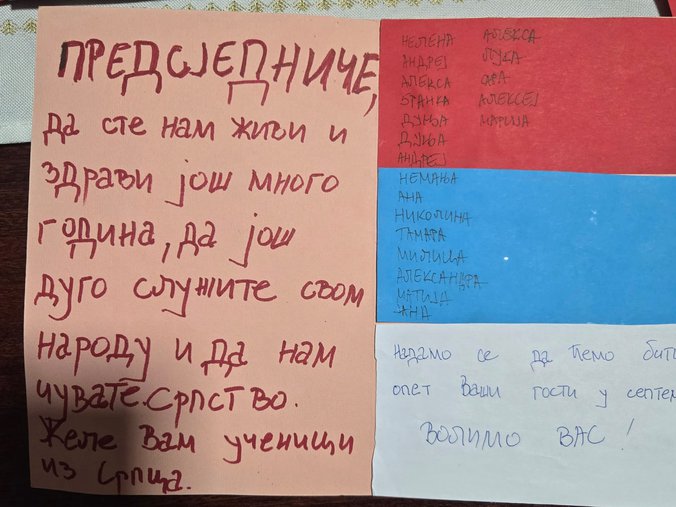 ПРЕДСЈЕДНИЧЕ,
да сте нам живи и
здрави још много
година, да још
дуго служите свом
народу и да нам
чувате Српство.
Желе Вам ученици
из Српца.
НЕЛЕНА АЛЕКСА
АНДРЕЈ ЛУКА
АЛЕКСА
БРАНКА АЛЕКСЕЈ
ДУЊА МАРИЈА
ДУЊА
АНДРЕЈ
НЕМАЊА
АНА
НИКОЛИНА
ТАМАРА
МИЛИЦА
АЛЕКСАНДРА
МАТИЈА
АНА
Надамо се да ћемо бити
опет Ваши гости у септем
ВОЛИМО ВАС!